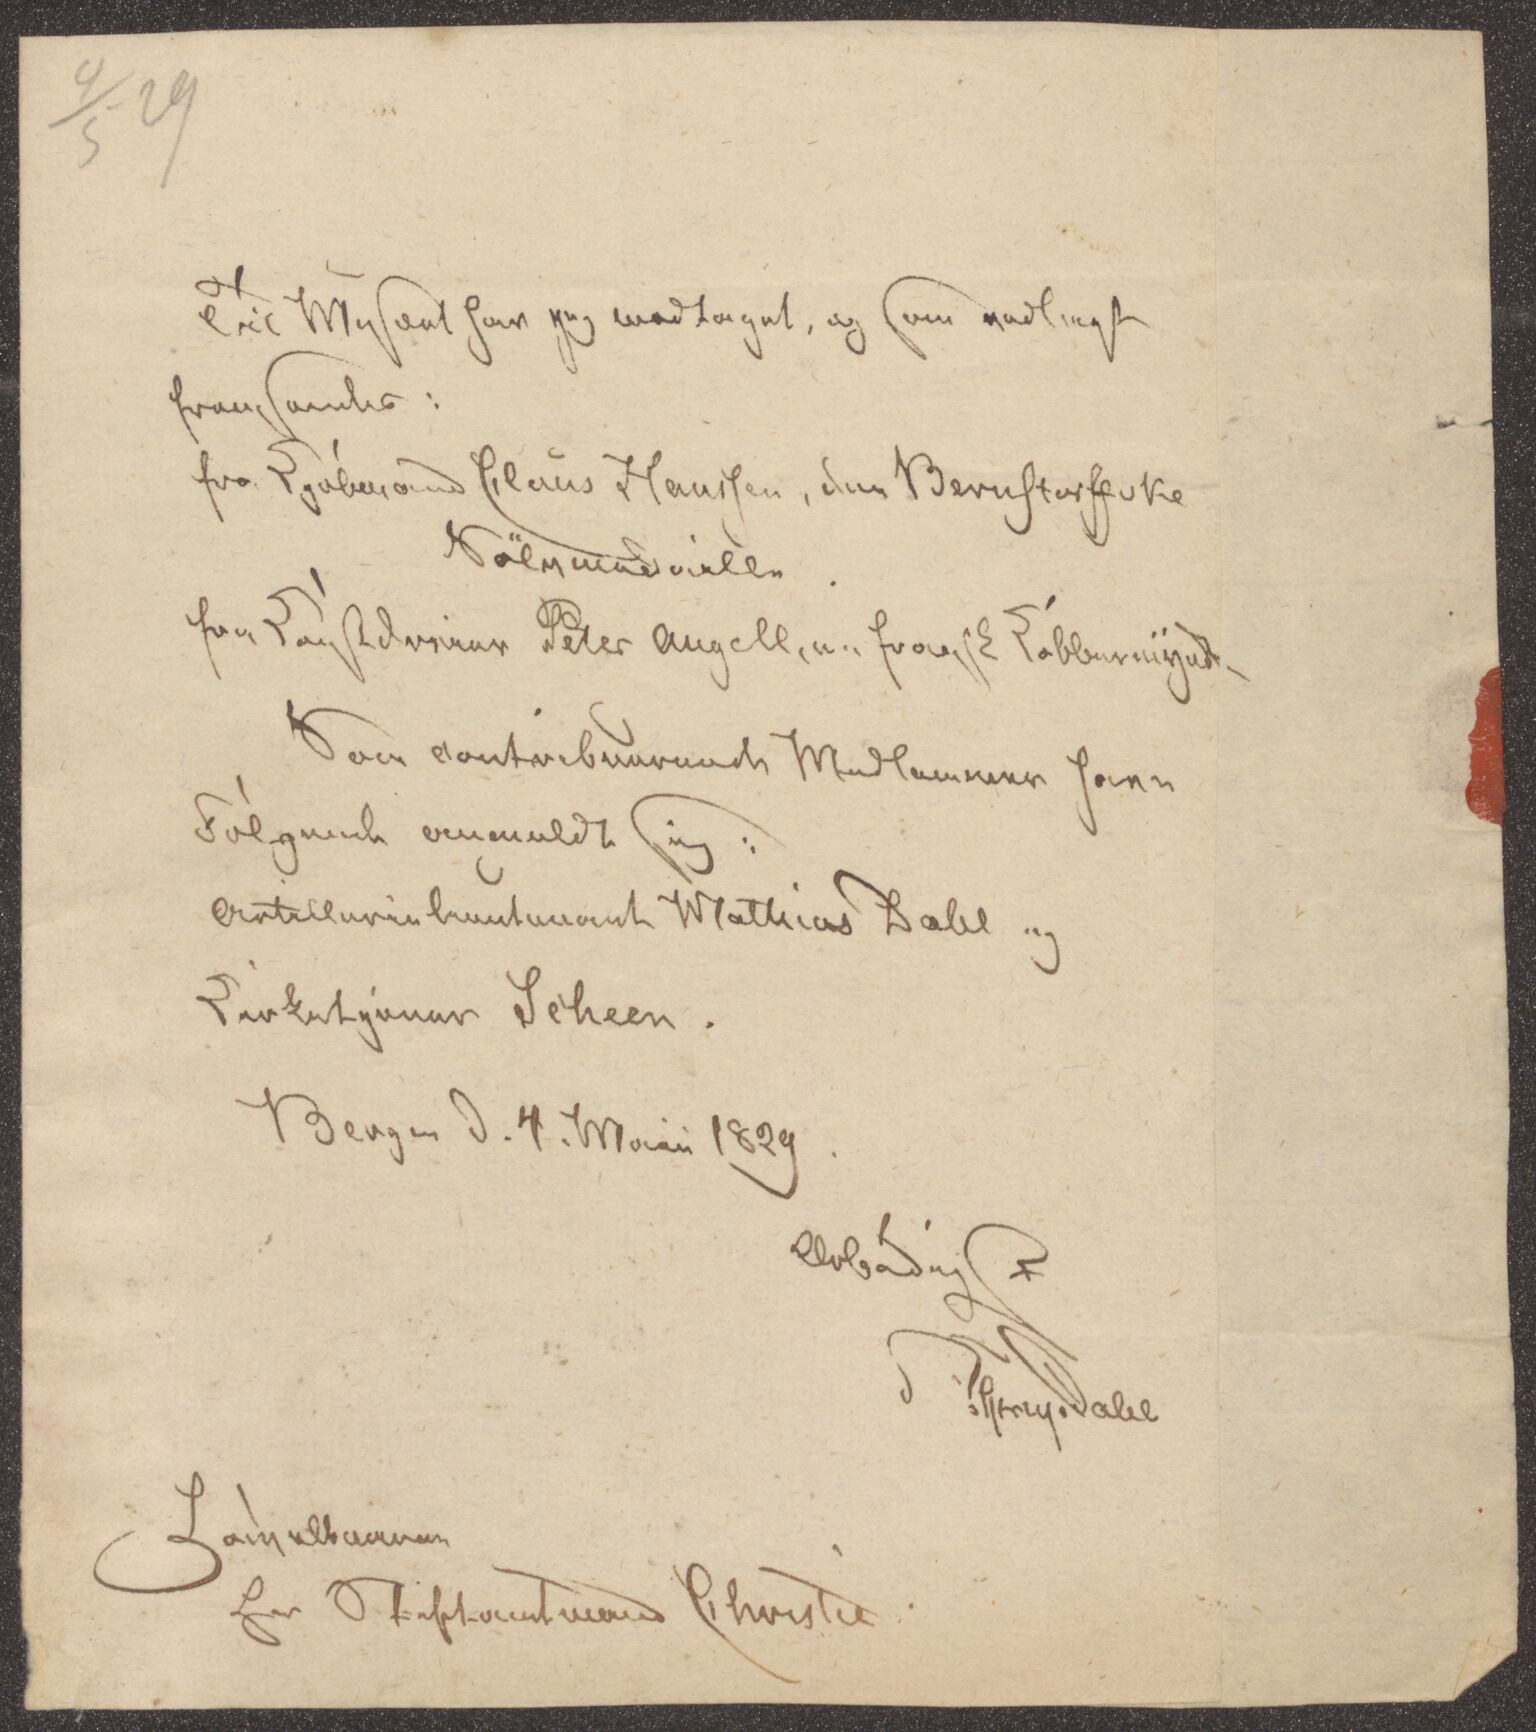 4/5 29
Til Musæet har jeg modtaget, og som vedlagt
fremsendes:
fra Kjøbmand Claus Hanssen, den Bernstorffske
Sölvmedaille.
fra Peter Angell, en fransk Kobbermynt
Som contribuerende Medlemmer have
Følgende anmeldt sig:
Artillerielieutenant Mathias Dahl og
Kirketjener Scheen.
Bergen d. 4. Maii 1829.
Ærbødigst
Dahl
Høivelbaarne
Hr Stiftamtmand Christie.